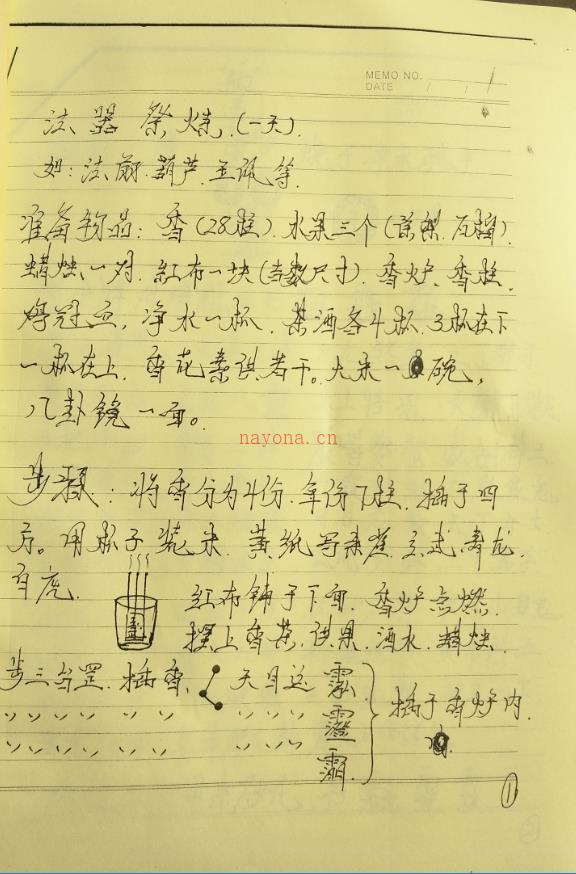 MEMO NO.
DATE / /
1
法器祭炼,(一天).
如:法扇.葫芦.玉佩等.
准备物品:香(28柱).水果三个(
蜡烛一对.红布一块(当数尺寸).香炉、香柱.
净水一杯.茶酒各4杯.3杯在下
一杯在上.香花素供若干。大米一碗,
八卦镜一面。
步骤:将香分为4份.每份7柱.插于四
方。用杯子装米.黄纸写朱雀.玄武青龙.
白虎.
红布铺于下面.香炉点燃.
摆上香茶.供果.酒水.蜡烛.
步三台罡.插香.天目运
插于香炉内.
nayona.cn
1